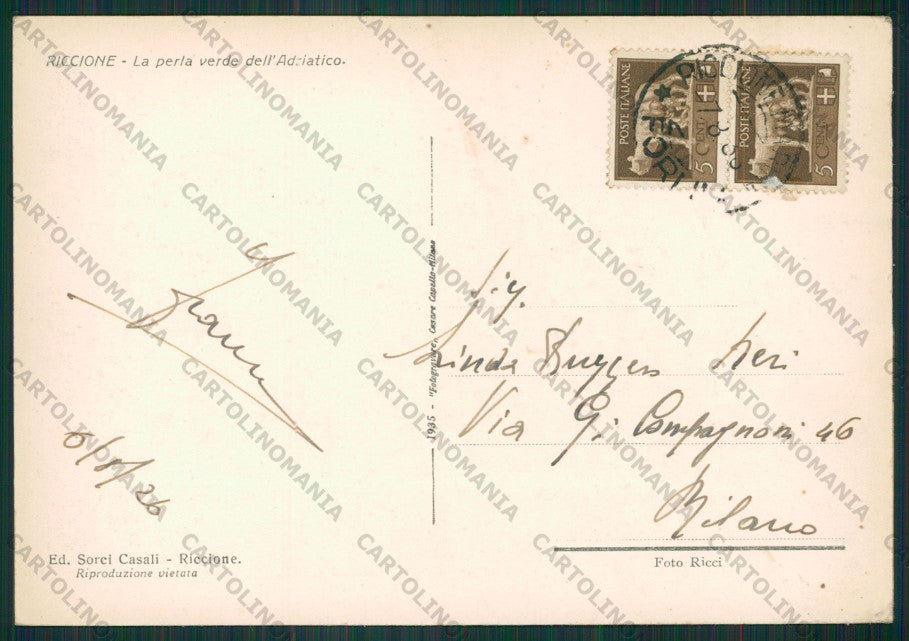 RICCIONE - La perla verde dell'Adriatico.
POSTE ITALIANE
5 CENT.
POSTE ITALIANE
5 CENT.
RICCIONE
FORLI
1935 - "Fotogravure, Cesare Capello-Milano
Sig.
Linda Ruggero Neri
Via G. Compagnoni 46
Milano
Ed. Sorci Casali - Riccione.
Riproduzione vietata
Foto Ricci
CARTOLINOMANIA